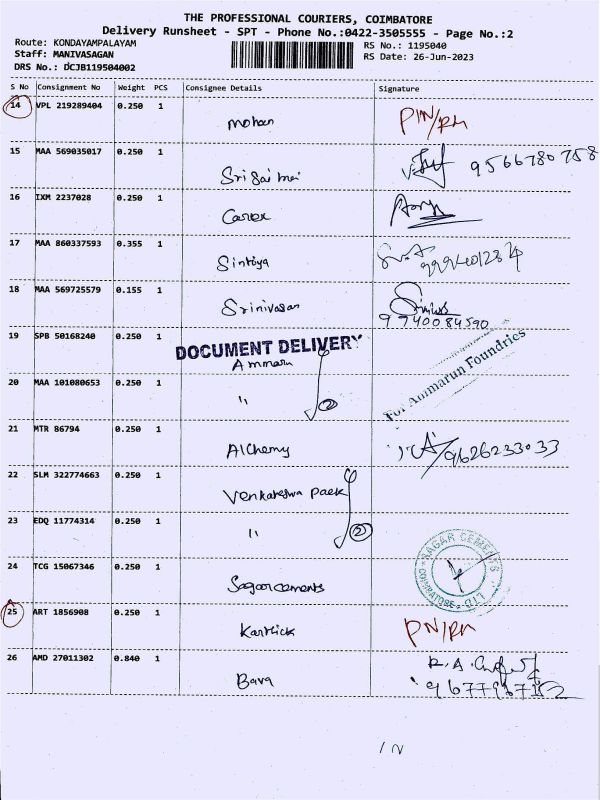 THE PROFESSIONAL COURIERS, COIMBATORE
Delivery Runsheet - SPT - Phone No.:0422-3505555 - Page No.:2
Route: KONDAYAMPALAYAM RS No.: 1195040
Staff: MANIVASAGAN RS Date: 26-Jun-2023
DRS No.: DCJB119504002
S No Consignment No Weight PCS Consignee Details Signature
14 VPL 219289404 0.250 1 mohan PIN/RM
15 MAA 569035017 0.250 1 Sri Sai 9566780758
16 IXM 2237028 0.250 1 Carex
17 MAA 860337593 0.355 1 Sinthya
18 MAA 569725579 0.155 1 Srinivasan 9940084590
19 SPB 50168240 0.250 1 DOCUMENT DELIVERY
Ammarun For Ammarun Foundries
20 MAA 101080653 0.250 1 " 2
21 MTR 86794 0.250 1 Alchemy 9626233033
22 SLM 322774663 0.250 1 Venkateswa
23 EDQ 11774314 0.250 1 " 2
24 TCG 15067346 0.250 1 Sagar cements SAGAR CEMENTS LTD COIMBATORE
25 ART 1856908 0.250 1 Karthick PN/RM
26 AMD 27011302 0.840 1 Bava